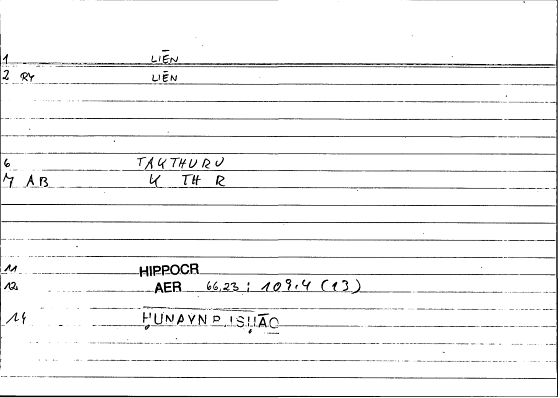 1 LIĒN
2 RY LIĒN
6 TAKTHURU
7 AB K TH R
11 HIPPOCR
12 AER 66,23 ; 109.4 (13)
14 ḤUNAYN B. ISḤĀQ